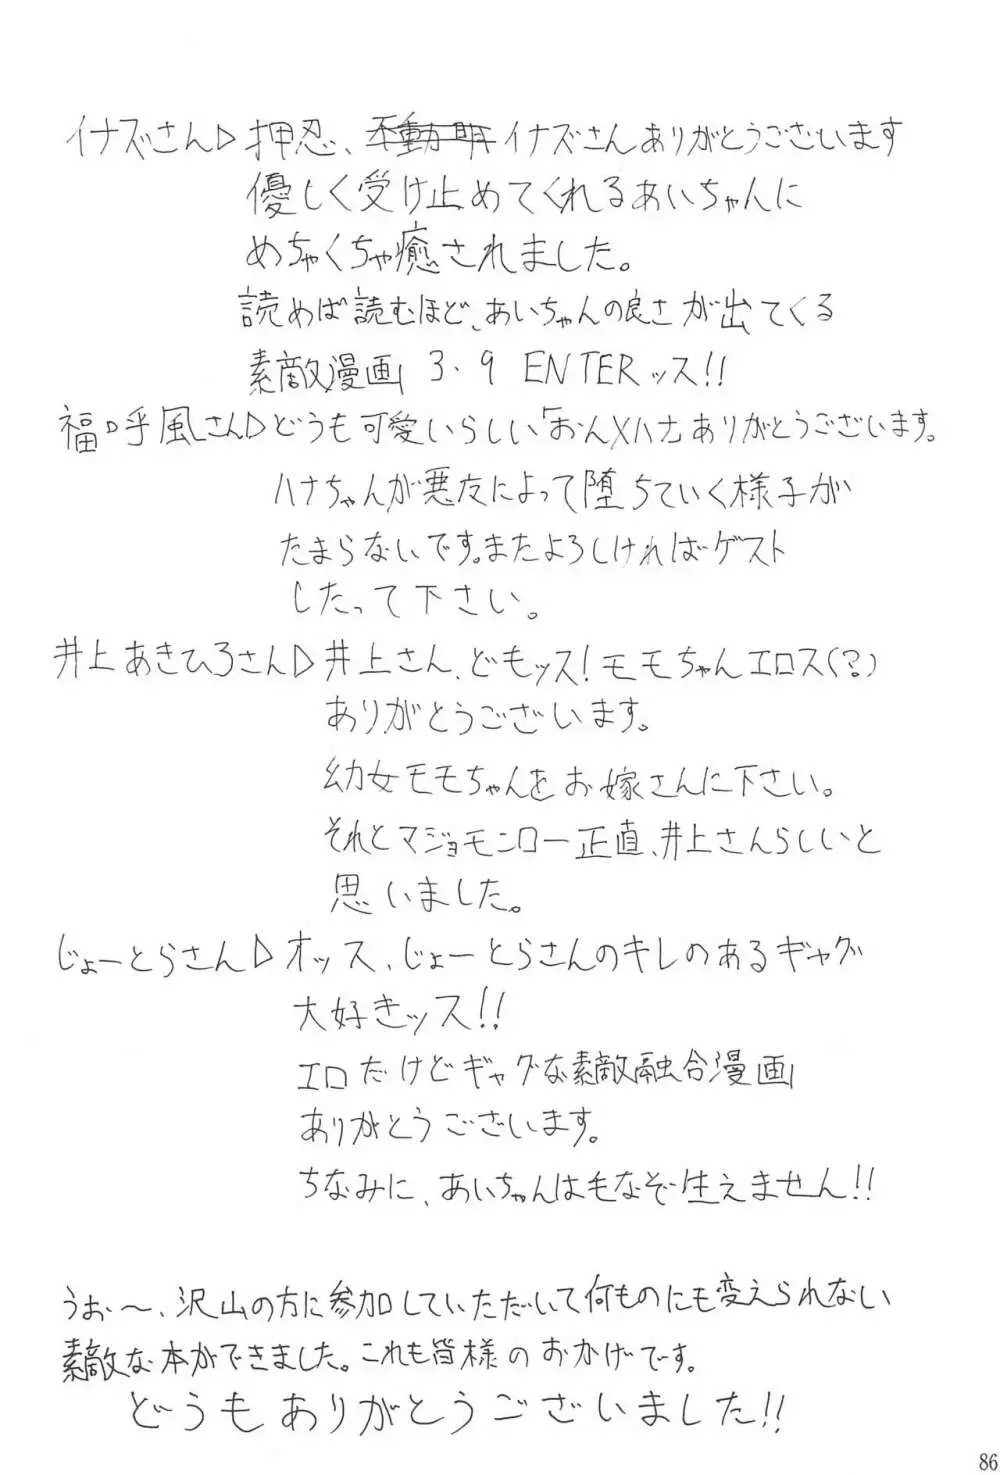 イナズさん▷押忍、不動明イナズさんありがとうございます
優しく受け止めてくれるあいちゃんに
めちゃくちゃ癒されました。
読めば読むほど、あいちゃんの良さが出てくる
素敵漫画 3.9 ENTERッス!!
福口呼風さん▷どうも可愛いらしい「おん×ハナ」ありがとうございます。
ハナちゃんが悪友によって堕ちていく様子が
たまらないです。またよろしければゲスト
したって下さい。
井上あきひろさん▷井上さん、どもッス!モモちゃんエロス(?)
ありがとうございます。
幼女モモちゃんをお嫁さんに下さい。
それとマジョモンロー正直、井上さんらしいと
思いました。
じょーとらさん▷オッス、じょーとらさんのキレのあるギャグ
大好きッス!!
エロだけどギャグな素敵融合漫画
ありがとうございます。
ちなみに、あいちゃんは毛なぞ生えません!!
うぉ〜、沢山の方に参加していただいて何ものにも変えられない
素敵な本ができました。これも皆様のおかげです。
どうもありがとうございました!!
86